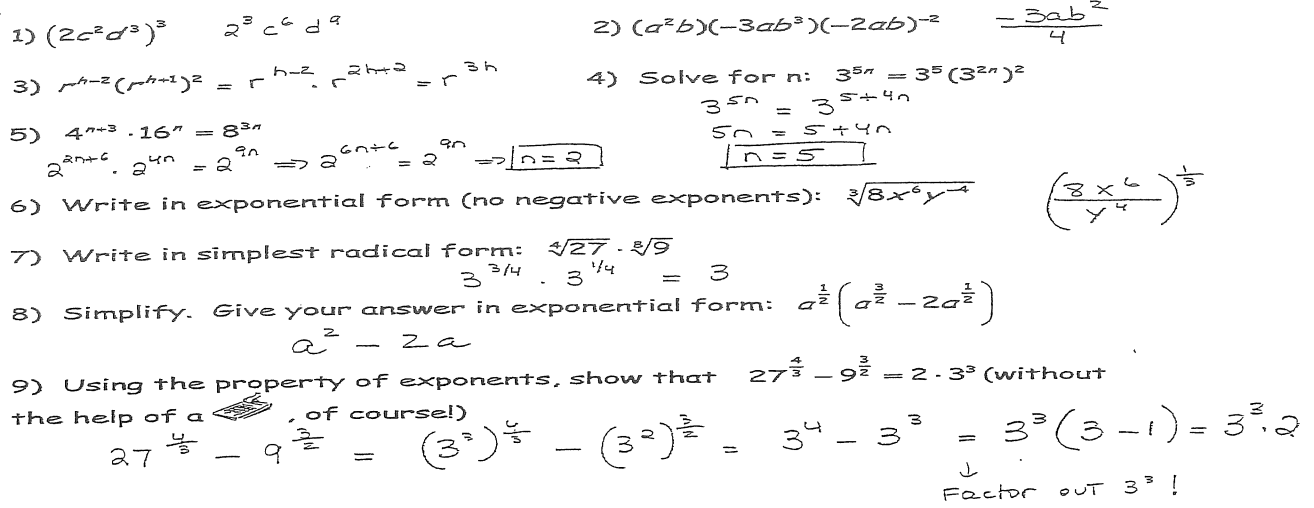 1) (2c²d³)³ 2³ c⁶ d⁹ 2) (a²b)(-3ab³)(-2ab)⁻² -3ab²/4
3) rʰ⁻²(rʰ⁺¹)² = rʰ⁻² · r²ʰ⁺² = r³ʰ 4) Solve for n: 3⁵ⁿ = 3⁵(3²ⁿ)²
3⁵ⁿ = 3⁵⁺⁴ⁿ
5) 4ⁿ⁺³ · 16ⁿ = 8³ⁿ 5n = 5+4n
2²ⁿ⁺⁶ · 2⁴ⁿ = 2⁹ⁿ => 2⁶ⁿ⁺⁶ = 2⁹ⁿ => n=2 n=5
6) Write in exponential form (no negative exponents): ∛(8x⁶y⁻⁴) (8x⁶/y⁴)^(1/3)
7) Write in simplest radical form: ∜27 · ⁸√9
3^(3/4) · 3^(1/4) = 3
8) Simplify. Give your answer in exponential form: a^(1/2)(a^(3/2) - 2a^(1/2))
a² - 2a
9) Using the property of exponents, show that 27^(4/3) - 9^(3/2) = 2 · 3³ (without
the help of a , of course!)
27^(4/3) - 9^(3/2) = (3³)^(4/3) - (3²)^(3/2) = 3⁴ - 3³ = 3³(3-1) = 3³·2
↓
Factor out 3³!